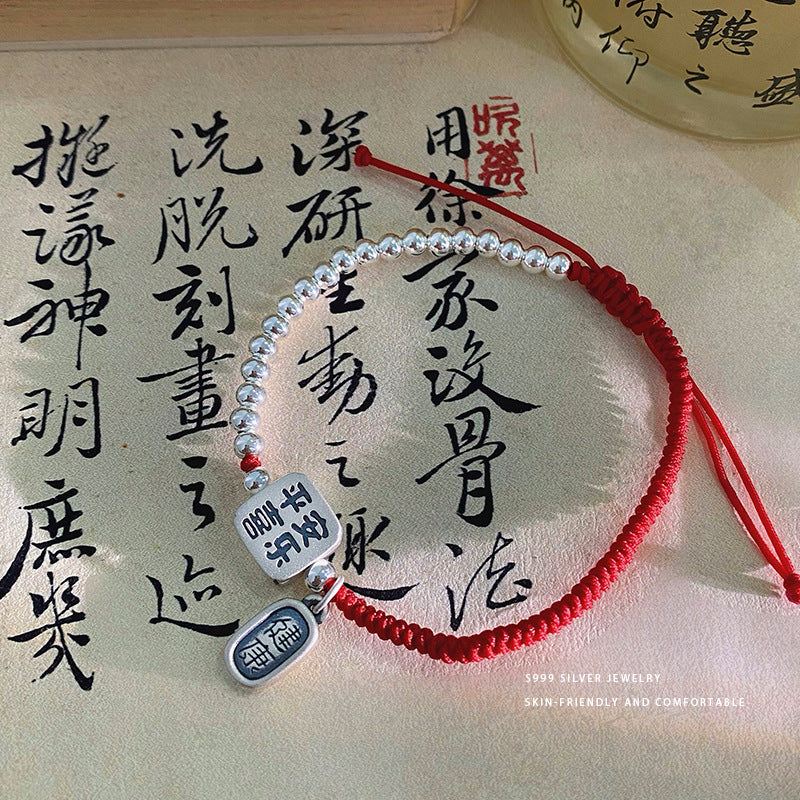 盛
聽之
仰
用徐家沒骨法
深研生動之趣
洗脱刻畫之迹
擬議神明庶幾
平喜
安乐
健康
S999 SILVER JEWELRY
SKIN-FRIENDLY AND COMFORTABLE